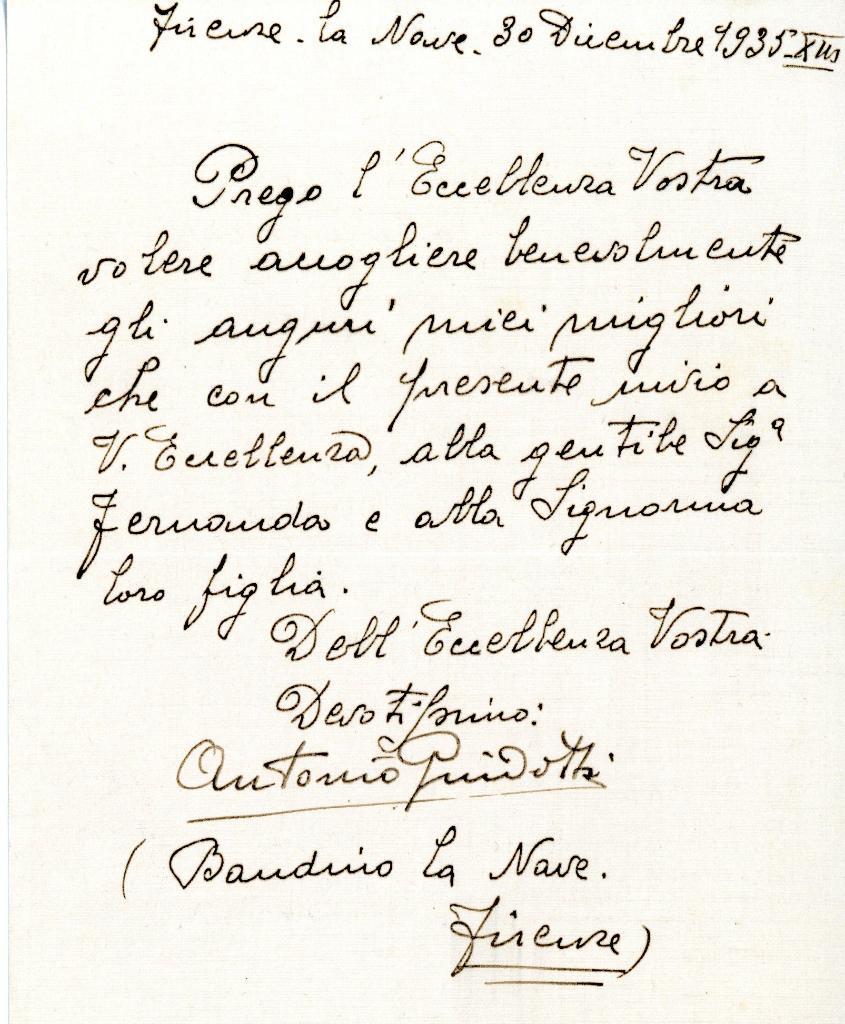 Firenze. la Nave. 30 Dicembre 1935
Prego l'Eccellenza Vostra
volere accogliere benevolmente
gli auguri miei migliori
che con il presente invio a
V. Eccellenza, alla gentile Sigª
Fernanda e alla Signorina
loro figlia.
Dell'Eccellenza Vostra
Devotissimo:
Antonio Guidotti
( Bandino la Nave.
Firenze)